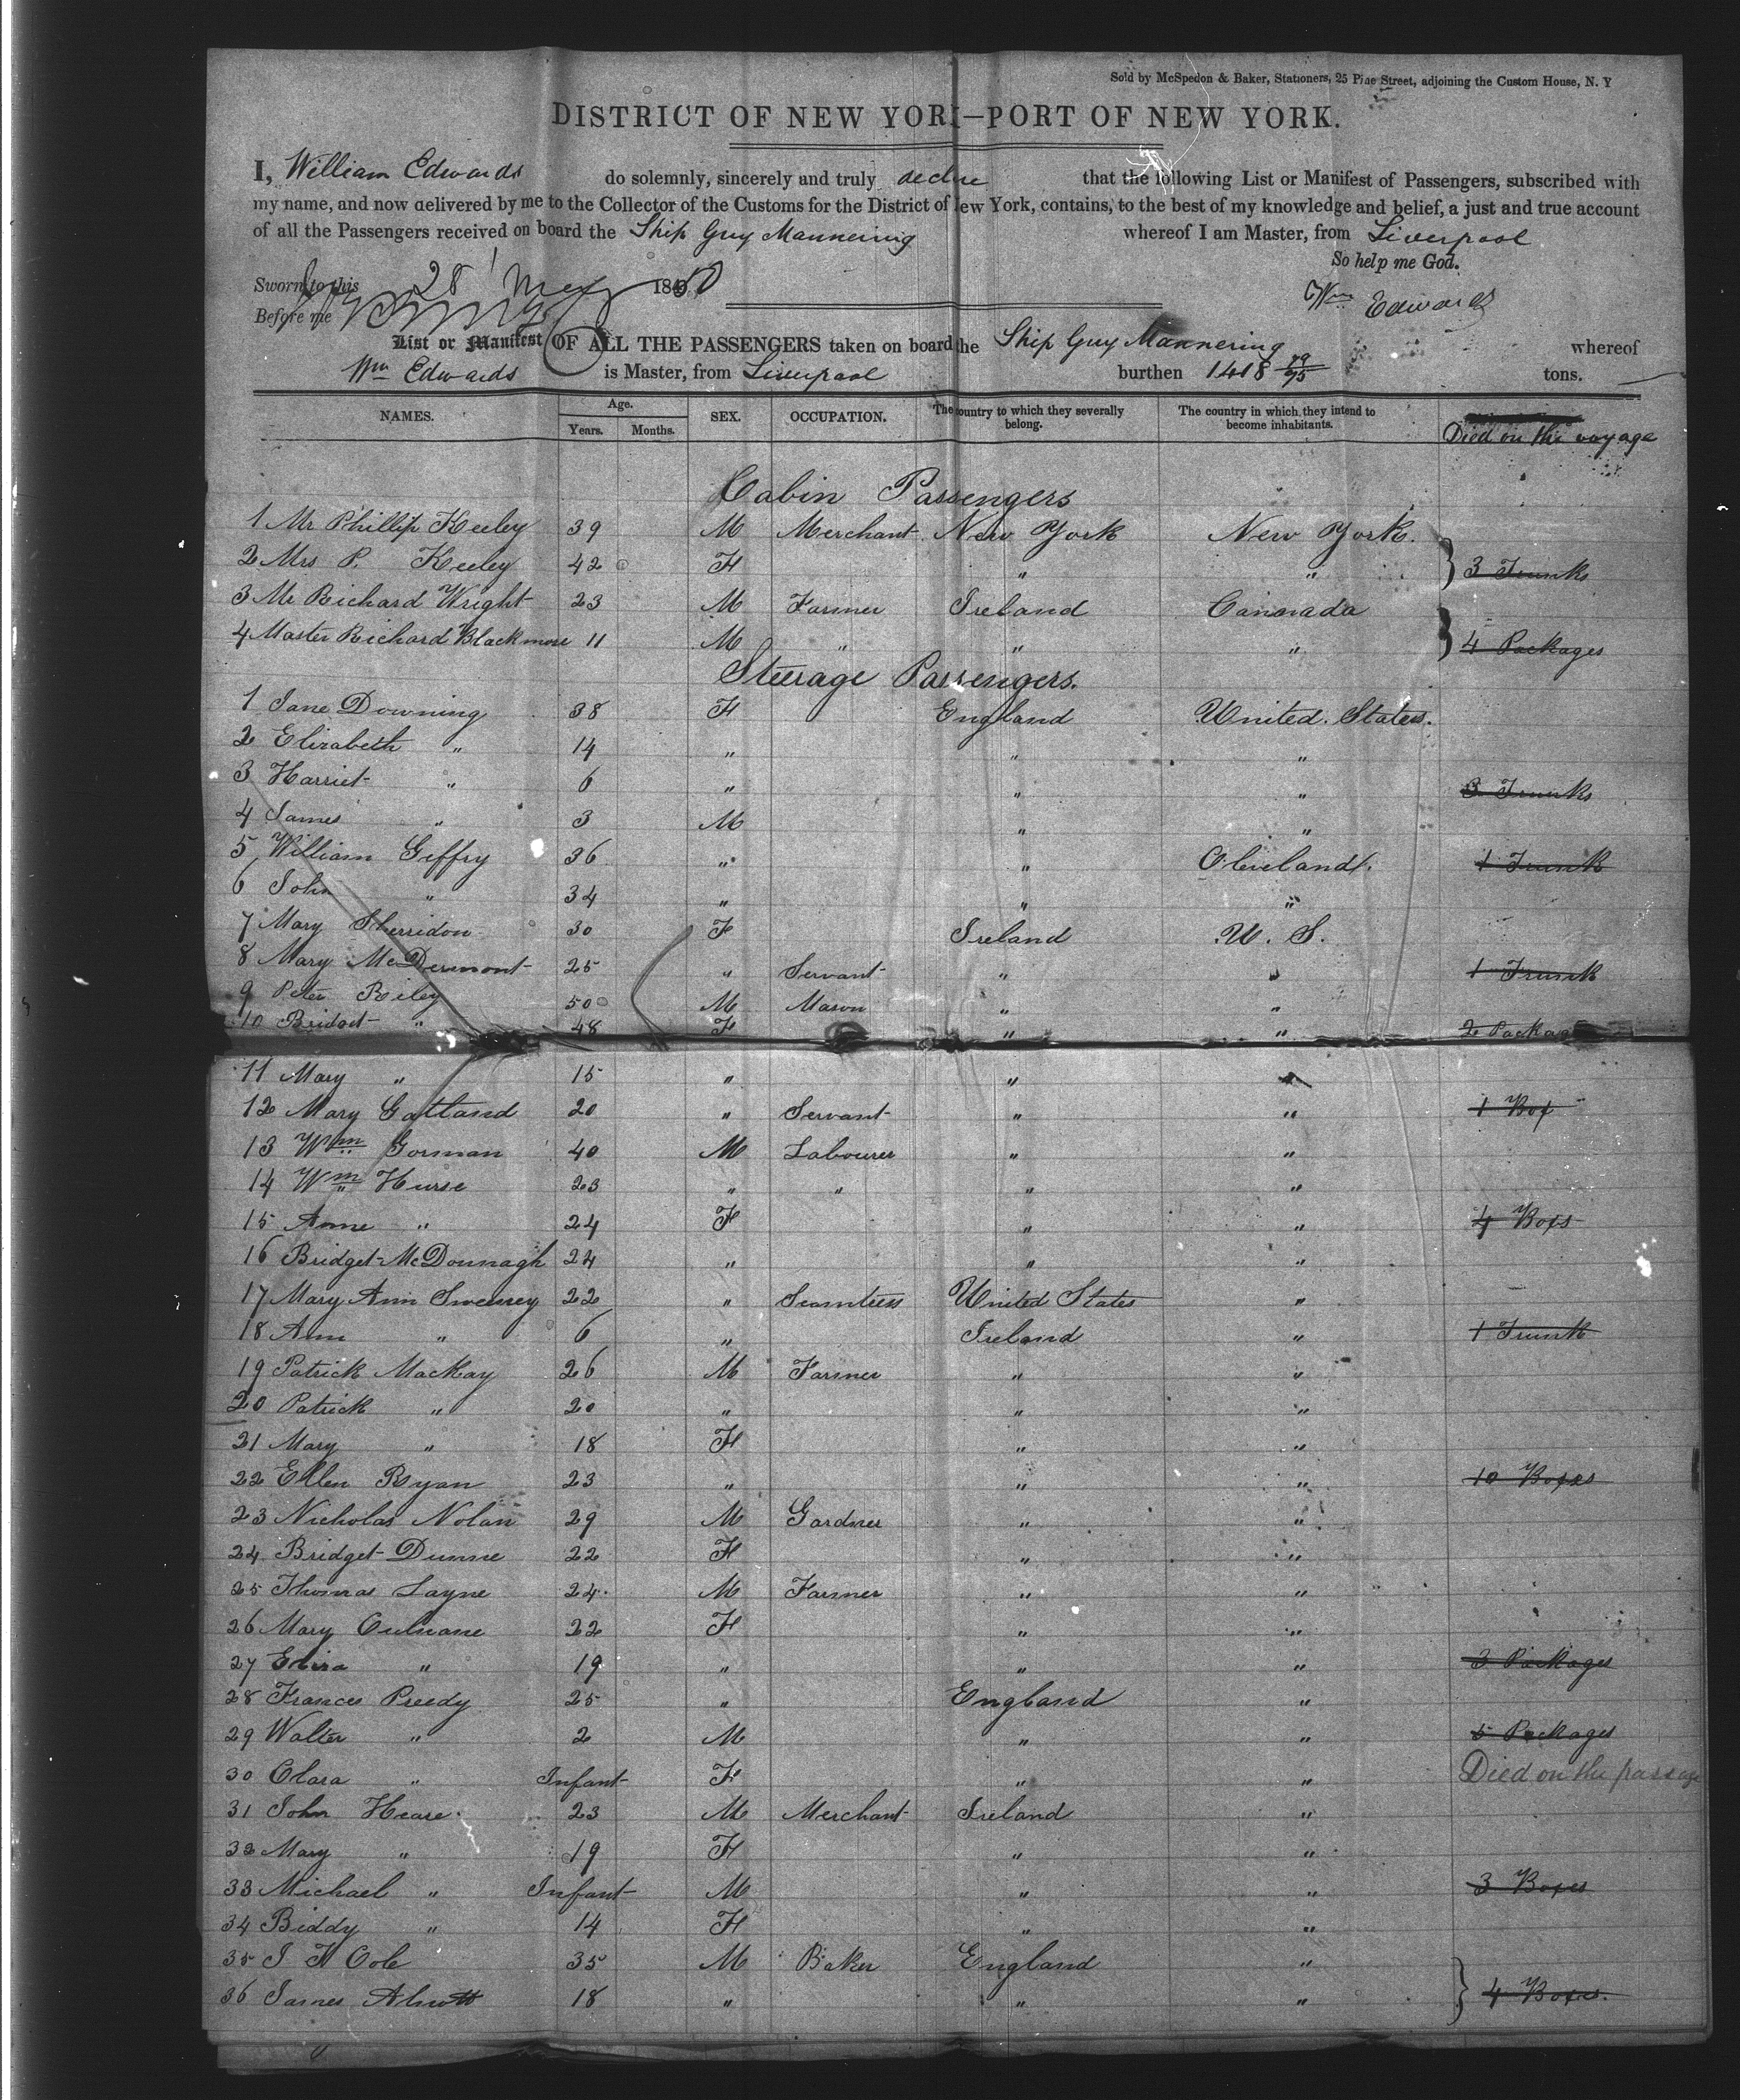 Sold by McSpedon & Baker, Stationers, 25 Pine Street, adjoining the Custom House, N. Y
DISTRICT OF NEW YORK—PORT OF NEW YORK.
I, William Edwards do solemnly, sincerely and truly declare that the following List or Manifest of Passengers, subscribed with
my name, and now delivered by me to the Collector of the Customs for the District of New York, contains, to the best of my knowledge and belief, a just and true account
of all the Passengers received on board the Ship Guy Mannering whereof I am Master, from Liverpool
So help me God.
Sworn to this 28 May 1850
Wm Edwards
Before me
List or Manifest OF ALL THE PASSENGERS taken on board the Ship Guy Mannering whereof
Wm Edwards is Master, from Liverpool burthen 1418 79/95 tons.
NAMES. Age. Years. Months. SEX. OCCUPATION. The country to which they severally belong. The country in which they intend to become inhabitants. Died on the voyage
Cabin Passengers
1 Mr Phillip Keeley 39 M Merchant New York New York.
2 Mrs P. Keeley 42 F " " 3 Trunks
3 Mr Richard Wright 23 M Farmer Ireland Cannada
4 Master Richard Blackmore 11 M " " " 4 Packages
Steerage Passengers.
1 Jane Downing 38 F England United States.
2 Elizabeth " 14 " " "
3 Harriet " 6 " " " 3 Trunks
4 James " 3 M " "
5 William Geffry 36 " " Cleveland. 1 Trunk
6 John " 34 " " "
7 Mary Sherridon 30 F Ireland U. S.
8 Mary McDermont 25 " Servant " " 1 Trunk
9 Peter Riley 50 M Mason " "
10 Bridget " 48 F " " 2 Packag
11 Mary " 15 " " "
12 Mary Gatland 20 " Servant " " 1 Box
13 Wm Gorman 40 M Labourer " "
14 Wm Hurse 23 " " " "
15 Anne " 24 F " " 4 Boxs
16 Bridget McDonnagh 24 " " "
17 Mary Ann Sweeney 22 " Seamtress United States "
18 Ann " 6 " Ireland " 1 Trunk
19 Patrick MacKay 26 M Farmer " "
20 Patrick " 20 " " "
21 Mary " 18 F " "
22 Ellen Ryan 23 " " " 10 Boxes
23 Nicholas Nolan 29 M Gardner " "
24 Bridget Dunne 22 F " "
25 Thomas Layne 24 M Farmer " "
26 Mary Culnane 22 F " "
27 Eliza " 19 " " " 3 Packages
28 Frances Preedy 25 " England "
29 Walter " 2 M " " 5 Packages
30 Clara " Infant F " " Died on the passage
31 John Heare 23 M Merchant Ireland "
32 Mary " 19 F " "
33 Michael " Infant M " " 3 Boxes
34 Biddy " 14 F " "
35 J H Cole 35 M Baker England "
36 James Alnott 18 " " " 4 Boxes.